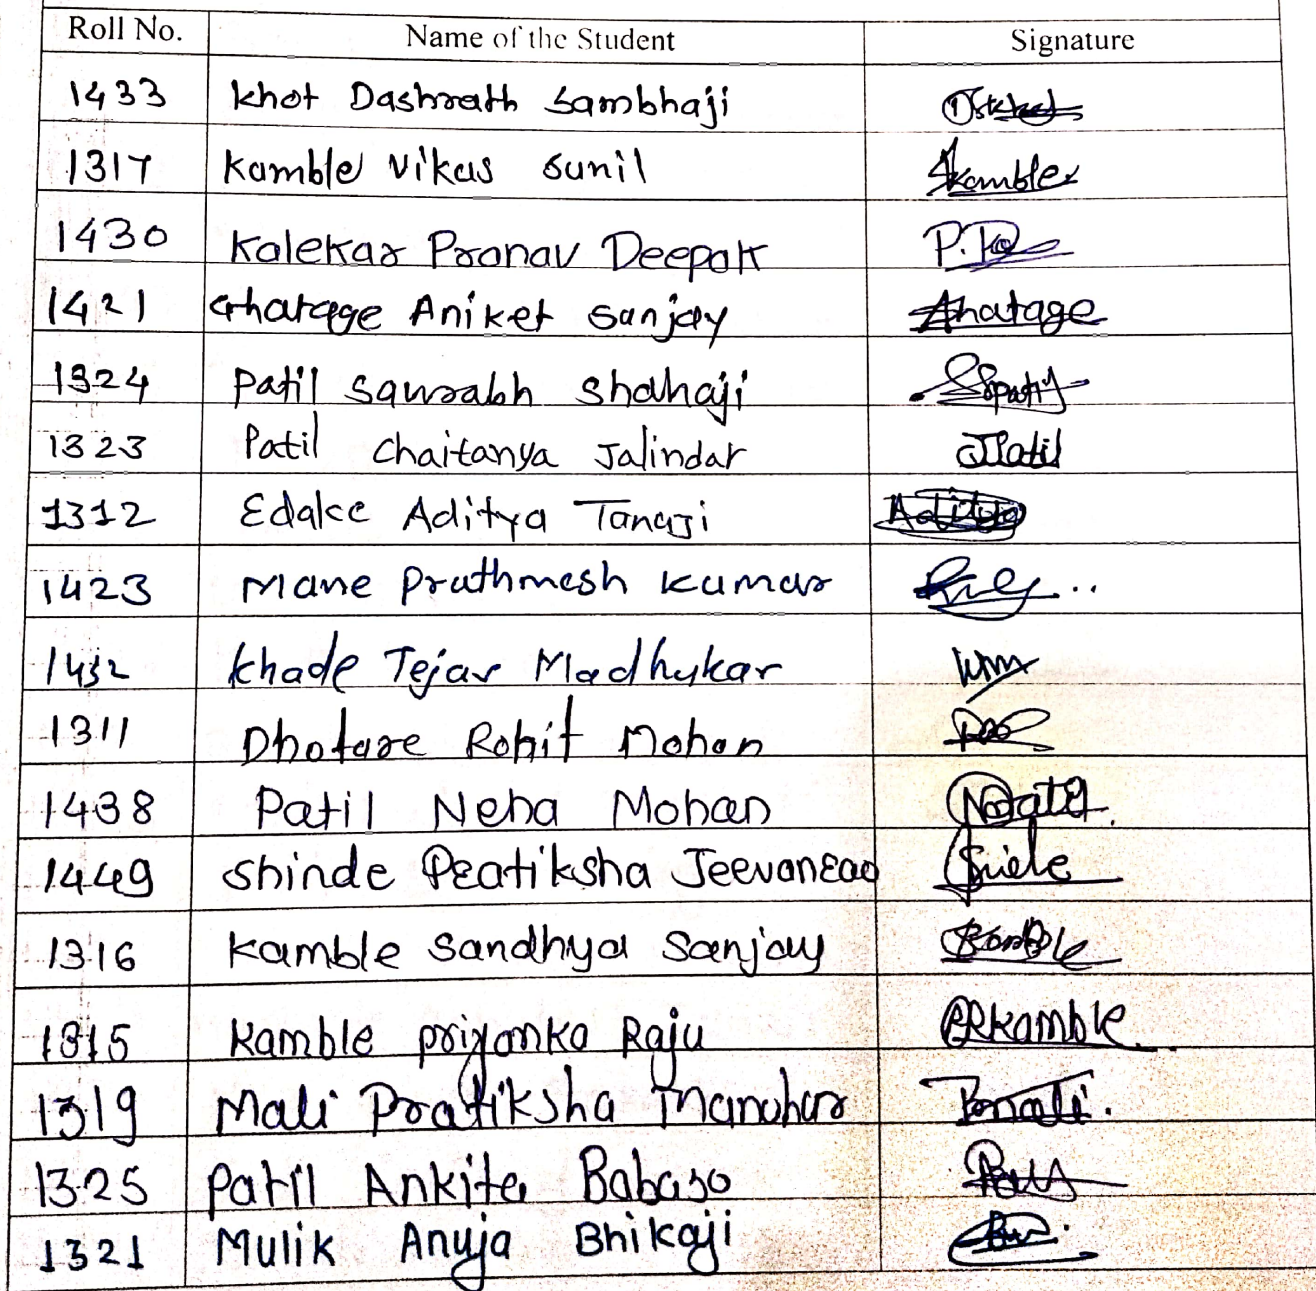 Roll No. Name of the Student Signature
1433 Khot Dashrath Sambhaji
1317 Kamble Vikas Sunil Kamble
1430 Kalekar Pranav Deepak
1421 Gharage Aniket Sanjay
1324 Patil Saurabh Shahaji
1323 Patil Chaitanya Jalindar JPatil
1312 Edake Aditya Tanaji Aditya
1423 Mane Prathmesh Kumar
1432 Khade Tejas Madhukar
1311 Dhotare Rohit Mohan
1438 Patil Neha Mohan
1449 Shinde Pratiksha Jeevanrao
1316 Kamble Sandhya Sanjay Kamble
1315 Kamble Priyanka Raju PRKamble
1319 Mali Pratiksha Manohar Pmali.
1325 Patil Ankita Babaso
1321 Mulik Anuja Bhikaji